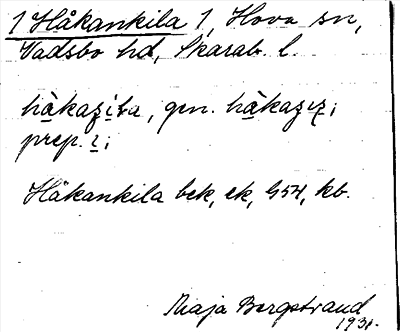 1 Håkankila 1, Hova sn,
Vadsbo hd, Skarab. l.
prep. i;
Håkankila bek, ek, G54, kb.
Maja Bergstrand
1931.